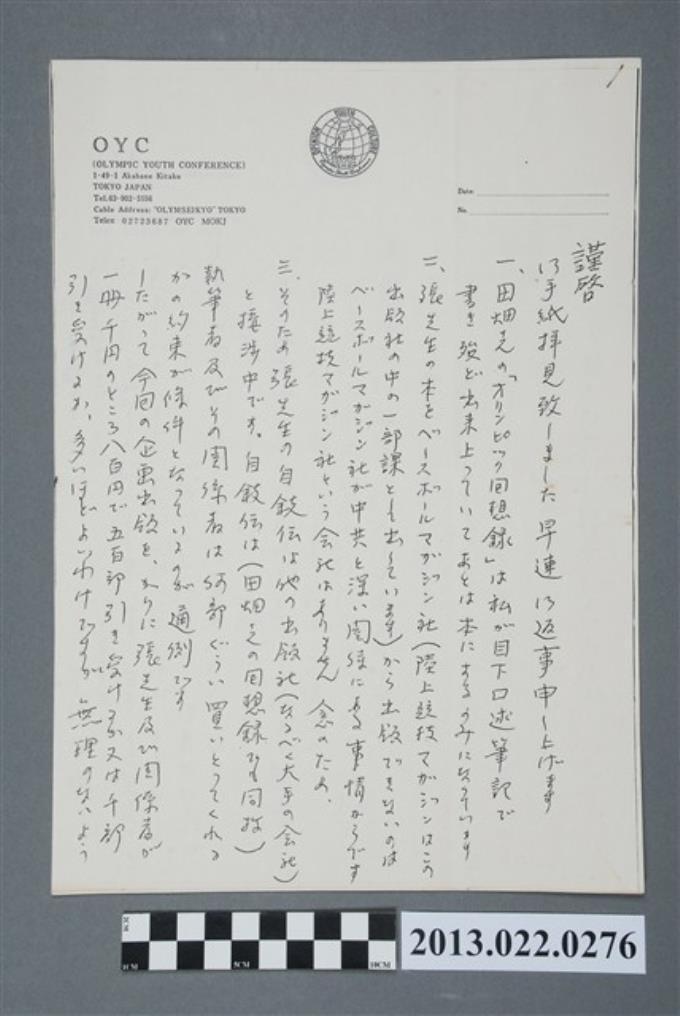 OYC
(OLYMPIC YOUTH CONFERENCE)
1-49-1 Akabane Kitaku
TOKYO JAPAN
Tel.03-902-5556
Cable Address: "OLYMSEIKYO" TOKYO
Telex 02723687 OYC MOKJ
Date
No.
謹啓
御手紙拝見致しました 早速御返事申し上げます
一、田畑さんの「オリンピック回想録」は私が目下口述筆記で
書き殆ど出来上っていてあとは本にするのみになっています
二、張先生の本をベースボールマガジン社(陸上競技マガジンはこの
出版社の中の一部課として出ています)から出版できないのは
ベースボールマガジン社が中共と深い関係にある事情からです
陸上競技マガジン社という会社はありません 念のため、
三、そのため張先生の自叙伝は他の出版社(なるべく大手の会社)
と接渉中です。自叙伝は(田畑さんの回想録も同様)
執筆者及びその関係者は何部ぐらい買いとってくれる
かの約束が条件となっているのが通例です
したがって今回の企画出版を、かりに張先生及び関係者が
一冊千円のところ八百円で五百部引き受けるか又は千部
引き受けるか、多いほどよいわけですが 無理のないよう
2013.022.0276